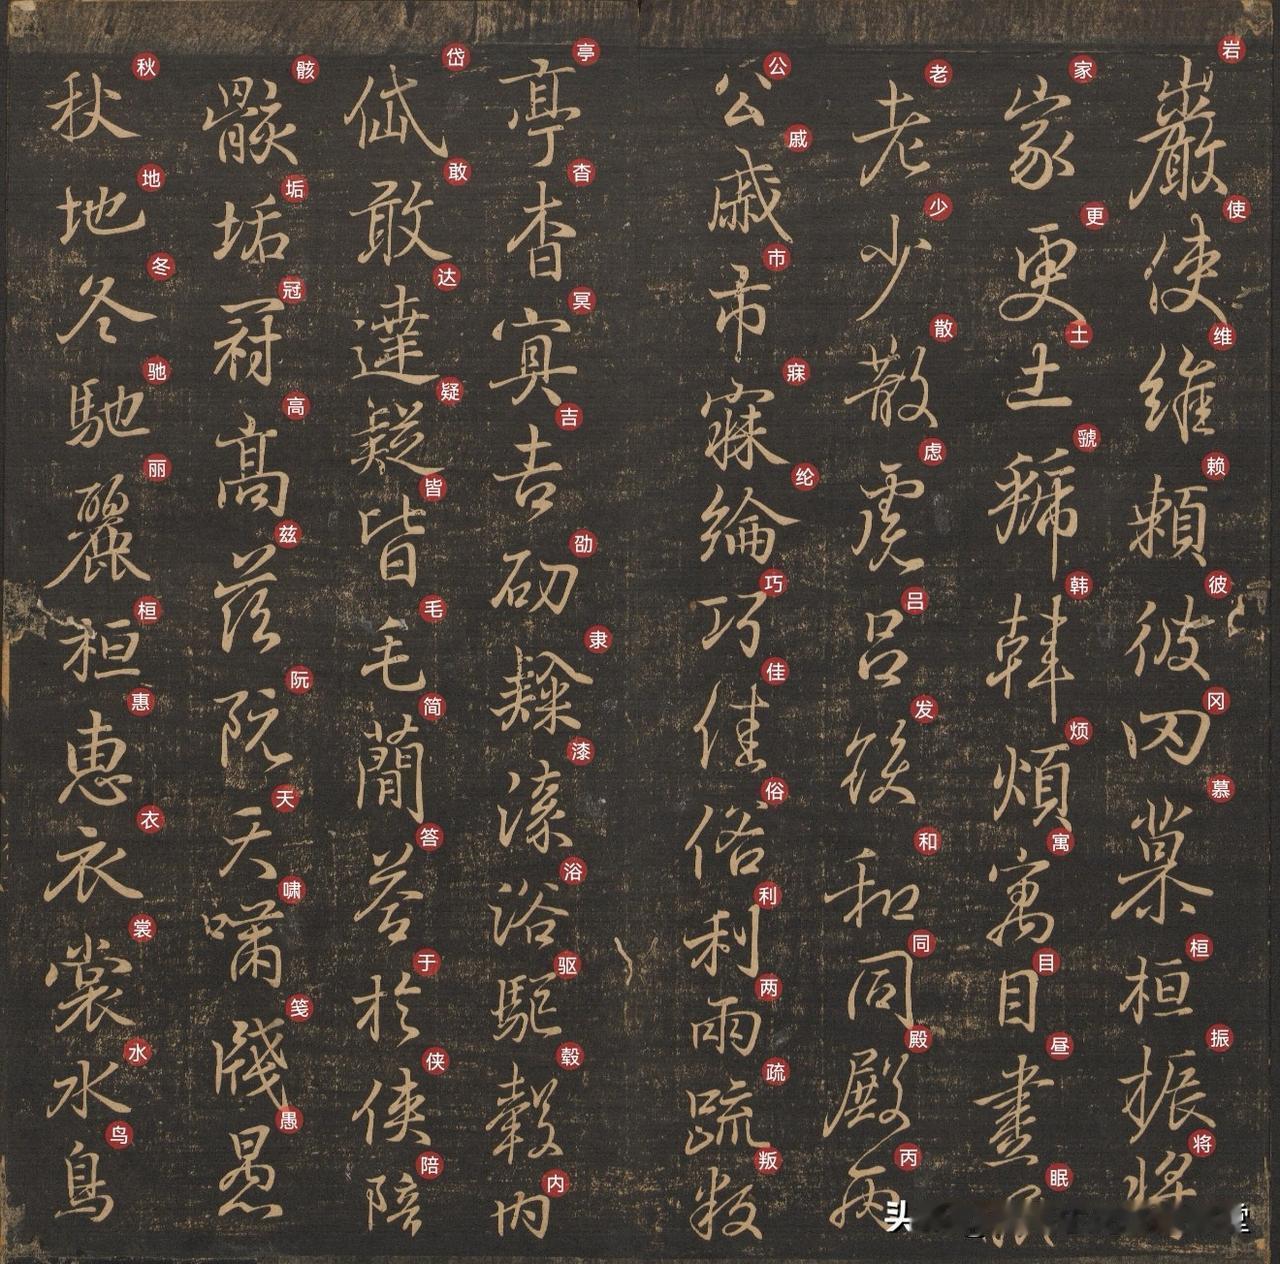 巖使維頼彼罓巢桓振將
岩使维赖彼冈慕桓振将
家更土號韓煩寓目晝眠
家更土虢韩烦寓目昼眠
老少散慮呂發和同殿丙
老少散虑吕发和同殿丙
公戚市寐綸巧佳俗利兩疏叛
公戚市寐纶巧佳俗利两疏叛
亭杳冥吉劭隸漆浴駈轂內
亭杳冥吉劭隶漆浴驱毂内
岱敢達疑皆毛簡答於俠陪
岱敢达疑皆毛简答于侠陪
骸垢冠高茲阮天嘯牋愚
骸垢冠高兹阮天啸笺愚
秋地冬馳麗桓惠衣裳水鳥
秋地冬驰丽桓惠衣裳水鸟
头